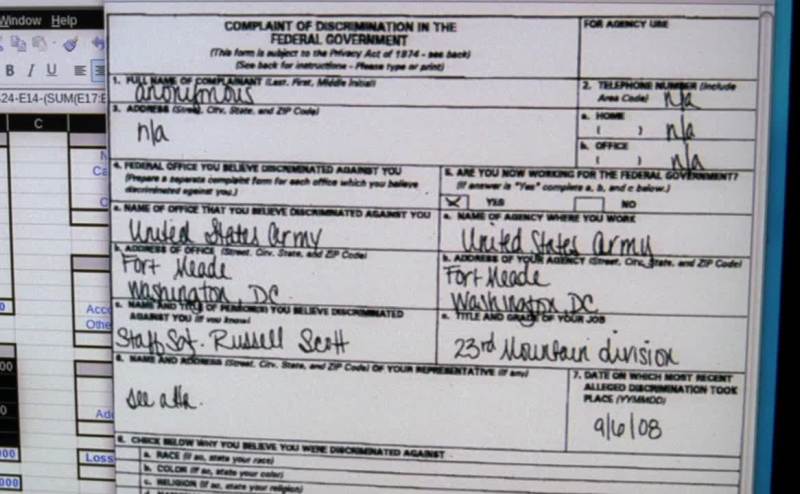 Window Help
B I U
S24-E14-(SUM(E17:E
C
COMPLAINT OF DISCRIMINATION IN THE
FEDERAL GOVERNMENT
(This form is subject to the Privacy Act of 1974 - see back)
(See back for instructions - Please type or print)
FOR AGENCY USE
1. FULL NAME OF COMPLAINANT (Last, First, Middle Initial)
anonymous
2. TELEPHONE NUMBER (Include
Area Code) n/a
3. ADDRESS (Street, City, State, and ZIP Code)
n/a
a. HOME
( ) n/a
b. OFFICE
( ) n/a
4. FEDERAL OFFICE YOU BELIEVE DISCRIMINATED AGAINST YOU
(Prepare a separate complaint form for each office which you believe
discriminated against you.)
5. ARE YOU NOW WORKING FOR THE FEDERAL GOVERNMENT?
(If answer is "Yes" complete a, b, and c below.)
YES NO
a. NAME OF OFFICE THAT YOU BELIEVE DISCRIMINATED AGAINST YOU
United States Army
a. NAME OF AGENCY WHERE YOU WORK
United States Army
b. ADDRESS OF OFFICE (Street, City, State, and ZIP Code)
Fort Meade
Washington, DC.
b. ADDRESS OF YOUR AGENCY (Street, City, State, and ZIP Code)
Fort Meade
Washington, DC
c. NAME AND TITLE OF PERSON(S) YOU BELIEVE DISCRIMINATED
AGAINST YOU (If you know)
Staff Sgt. Russell Scott
c. TITLE AND GRADE OF YOUR JOB
23rd Mountain division
6. NAME AND ADDRESS (Street, City, State, and ZIP Code) OF YOUR REPRESENTATIVE (If any)
see atta.
7. DATE ON WHICH MOST RECENT
ALLEGED DISCRIMINATION TOOK
PLACE (YYMMDD)
9/6/08
8. CHECK BELOW WHY YOU BELIEVE YOU WERE DISCRIMINATED AGAINST
a. RACE (If so, state your race)
b. COLOR (If so, state your color)
c. RELIGION (If so, state your religion)
Acco
Othe
Loss